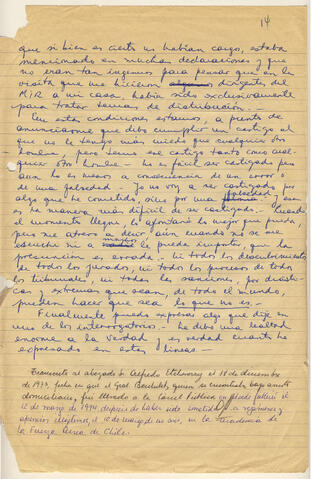 14
que si bien es cierto no habían cargo, estaba
mencionado en muchas declaraciones y que
no eran tan ingenuos para pensar que en la
visita que me hicieron dirigentes del
MIR a mi casa, habían sido exclusivamente
para tratar temas de distribución.-
En esta condiciones estamos, a punto de
anunciarme que debo cumplir un castigo al
que no le tengo más miedo que cualquier otro
hombre, pero temo ese castigo tanto como cual-
quier otro hombre.- No es fácil ser castigado pero
aún no es menos a consecuencia de un error o
de una falsedad.- Yo no voy a ser castigado por
algo que he cometido, sino por una falsedad, y esa
es la manera más difícil de ser castigado.- Cuando
el momento llegue, lo afrontaré lo mejor que pueda,
pero me atrevo a decir, aún cuando no se me
escuche ni a nadie le pueda importar, que la
presunción es errada.- Ni todos los descubrimientos
de todos los jurados, ni todos los procesos de todos
los tribunales, ni todas las sanciones, por drásti-
cas y extremas que sean, de todo el mundo,
pueden hacer que sea lo que no es.-
Finalmente puedo expresar algo que dije en
uno de los interrogatorios.- he dibo una lealtad
enorme a la verdad y es verdad cuanto he
expresado en estas líneas.-
Transmito al abogado Sr. Alfredo Etcheverry el 18 de diciembre
de 1973, fecha en que el Gral Bachelet, quien se encontraba bajo arresto
domiciliario, fue llevado a la Carcel Publica en donde falleció el
12 de marzo de 1974 después de haber sido sometido a vejámenes y
apremios ilegítimos, el 10 de marzo de ese año, en la Academia de
la Fuerza Aerea de Chile.